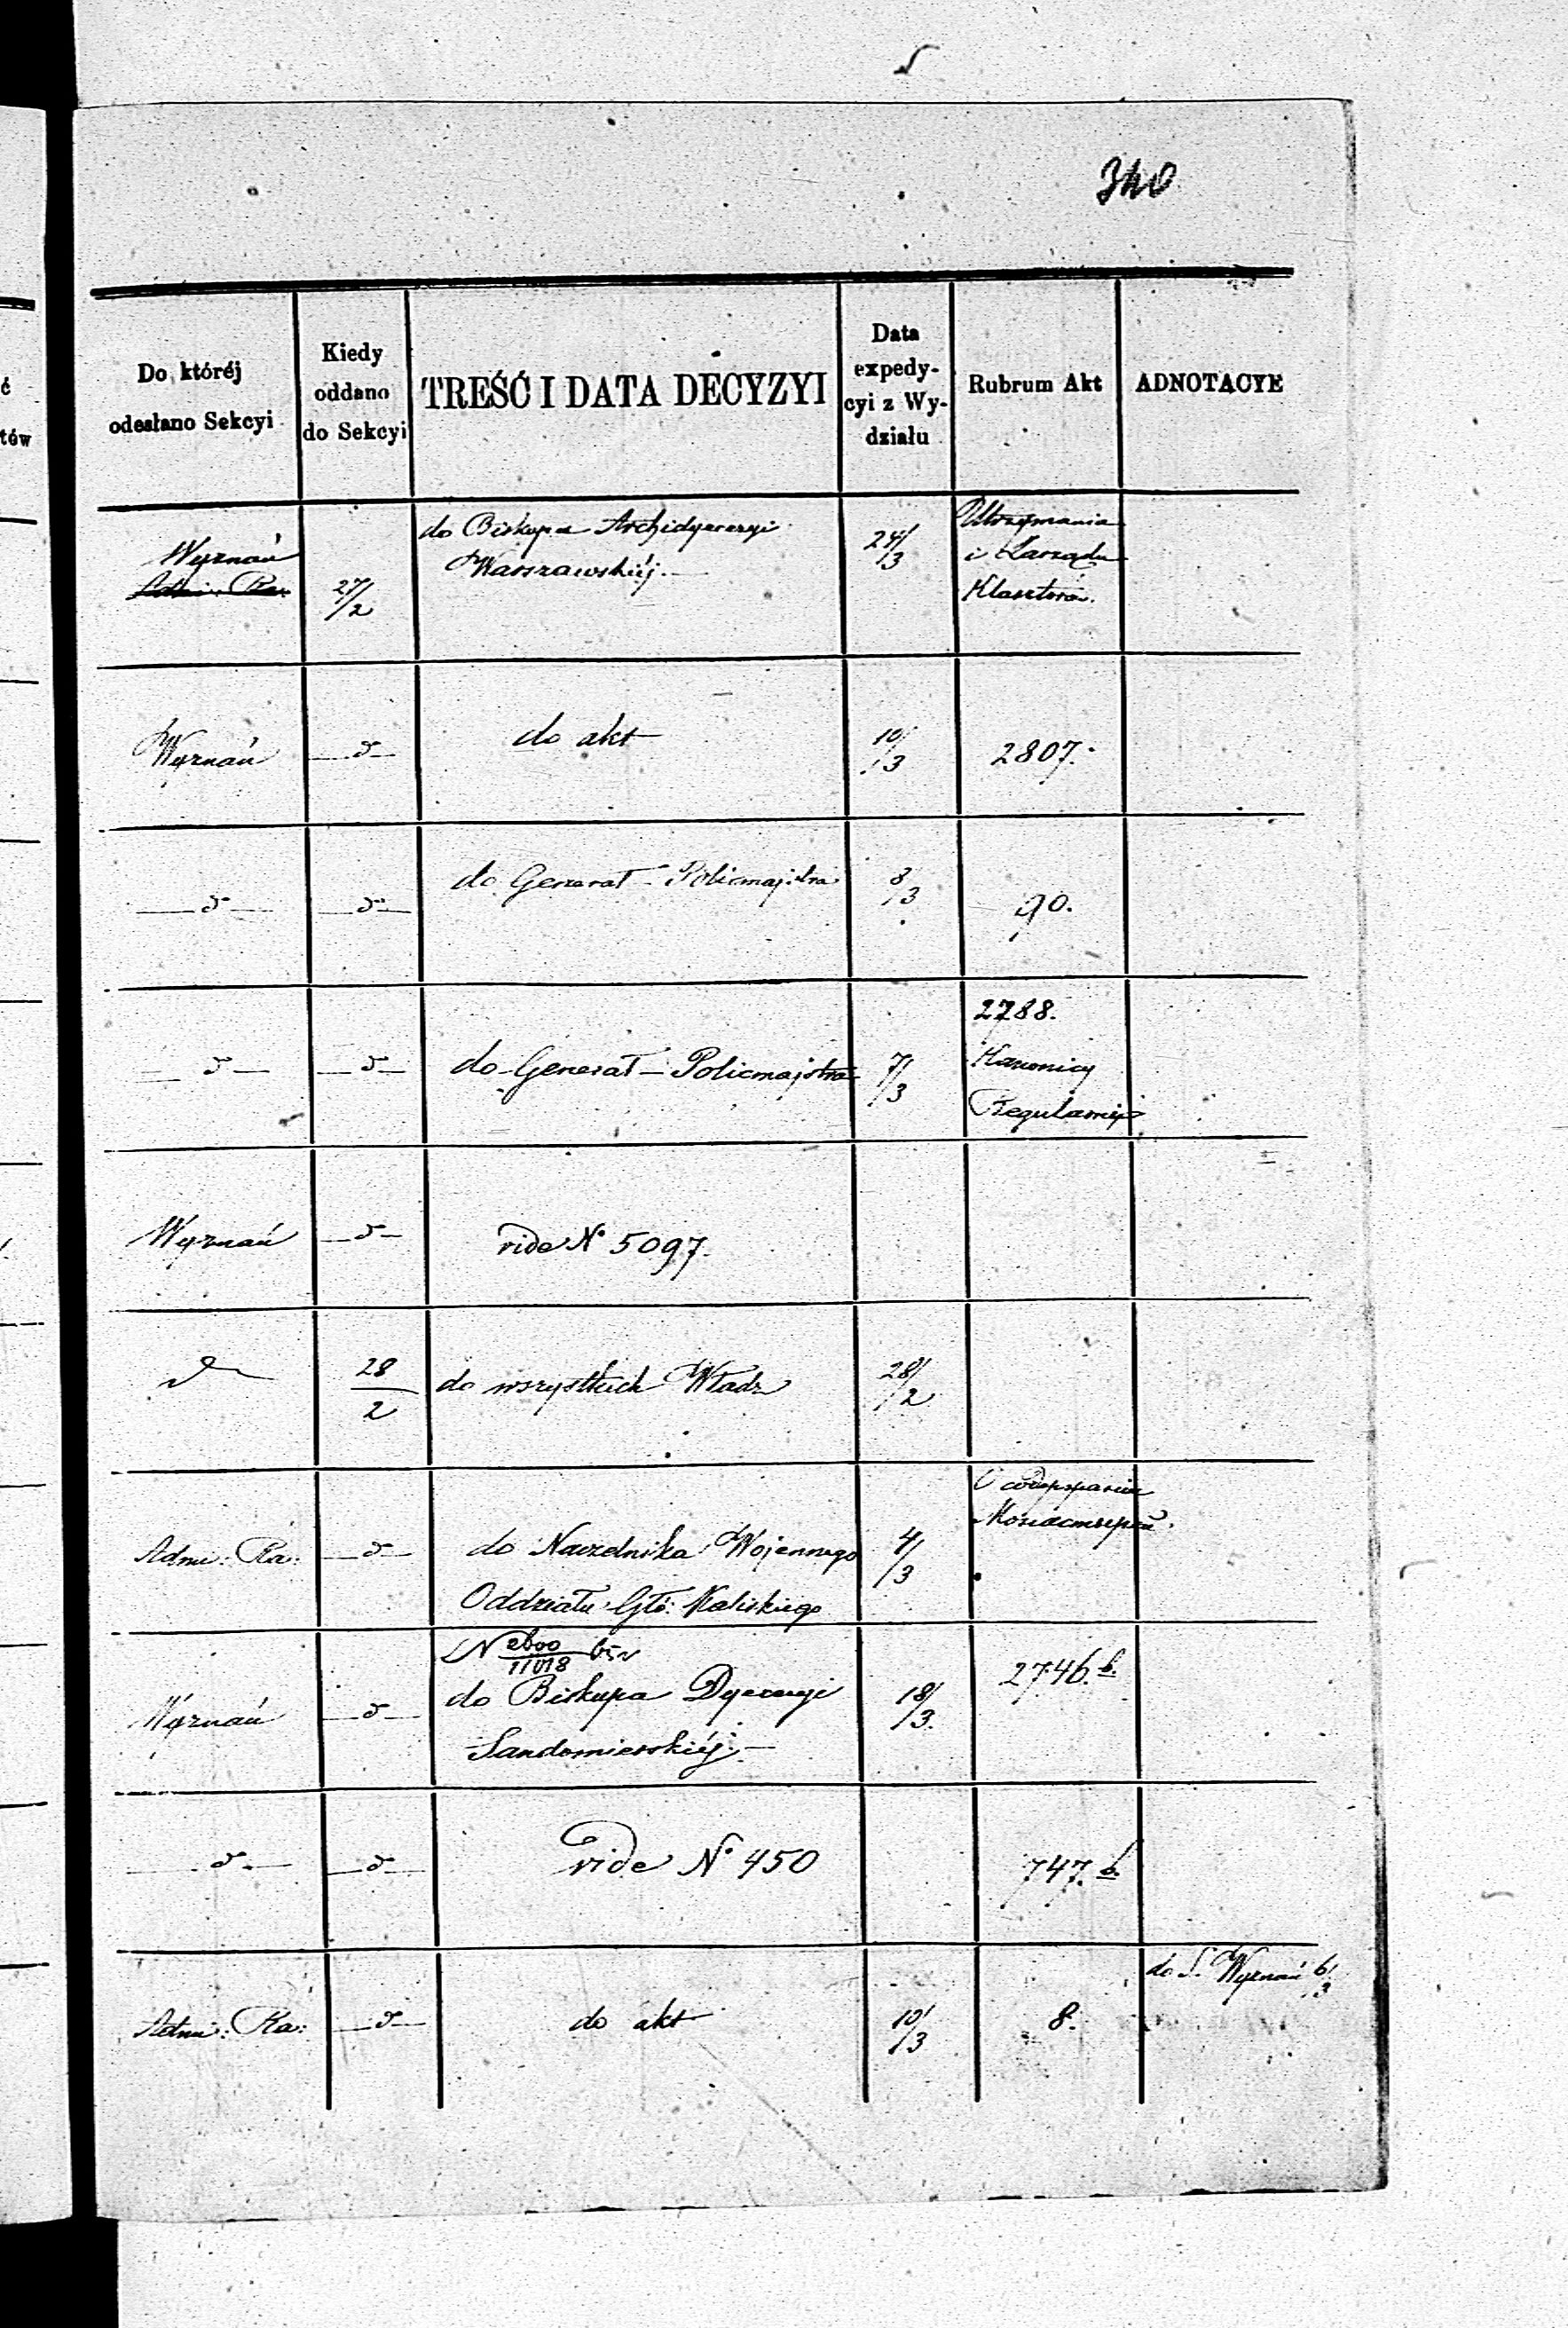 340
ć
tów
Do któréj
odesłano Sekcyi
Kiedy
oddano
do Sekcyi
TREŚĆ I DATA DECYZYI
Data
expedy-
cyi z Wy-
działu
Rubrum Akt
ADNOTACYE
Wyznań
Admi: Ra:
27/2
do Biskupa Archidyecezyi
Warszawskiéj.
24/3
Utrzymania
i Zarządu
Klasztorów.
Wyznań
—d—
do akt
10/3
2807.
—d—
—d—
do Generał-Policmajstra
8/3
90.
—d—
—d—
do Generał-Policmajstra
7/3
2788.
Kanonicy
Regularni
Wyznań
—d—
vide No 5097.
28/2
do wszystkich Władz
28/2
Admi: Ra:
—d—
do Naczelnika Wojennego
Oddziału Głó: Kaliskiego
4/3
О содержании
Wyznań
—d—
N 2600/11018 bis
do Biskupa Dyecezyi
Sandomierskiéj.—
18/3.
2746.b.
—d—
—d—
vide No 450
747.b.
Admi: Ra:
—d—
do akt
10/3
8.
do S. Wyznań 6/3